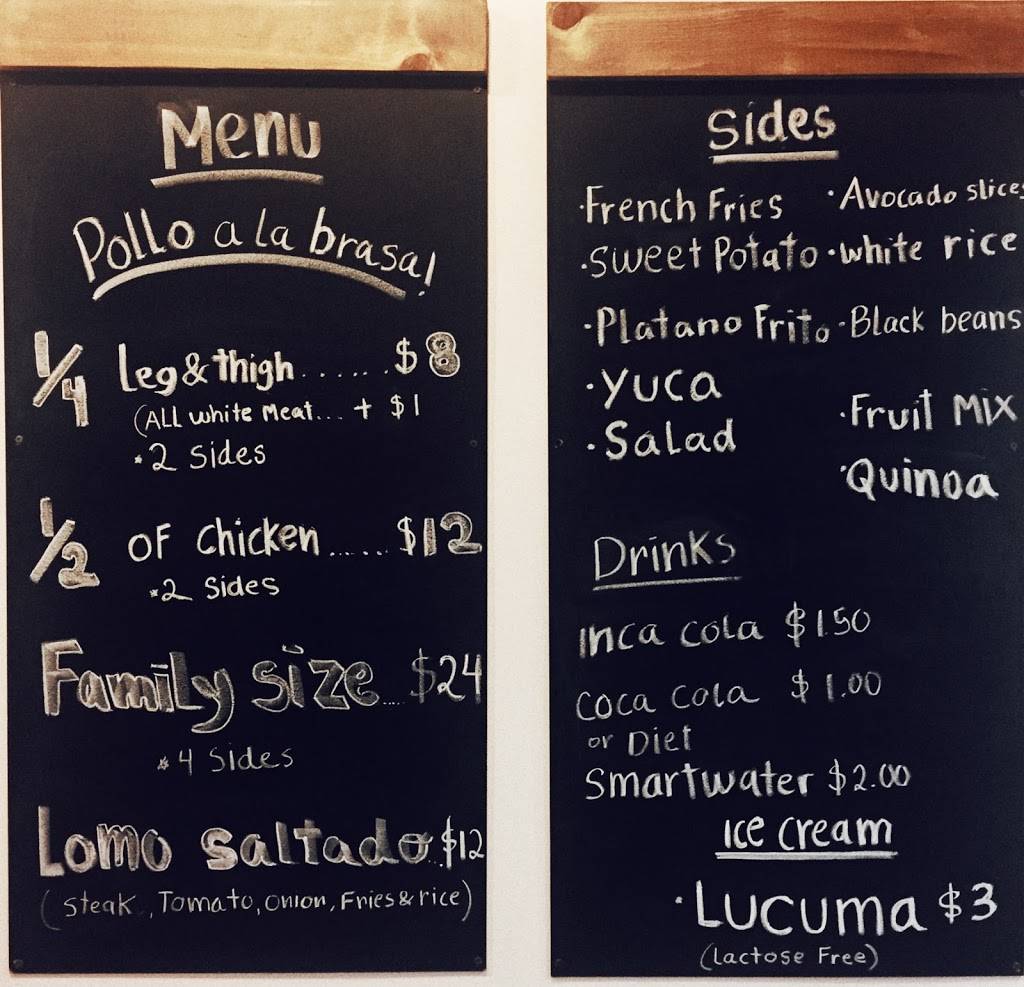 Menu
Pollo a la brasa!
1/4 Leg & thigh ...... $8
(ALL white Meat... + $1
*2 Sides
1/2 of chicken ...... $12
*2 Sides
Family size .... $24
*4 Sides
Lomo saltado.. $12
(steak, Tomato, onion, Fries & rice)
Sides
·French Fries ·Avocado slices
·Sweet Potato ·white rice
·Platano Frito ·Black beans
·Yuca
·Fruit Mix
·Salad
·Quinoa
Drinks
inca cola $1.50
coca cola $1.00
or Diet
Smartwater $2.00
Ice cream
·Lucuma $3
(lactose Free)